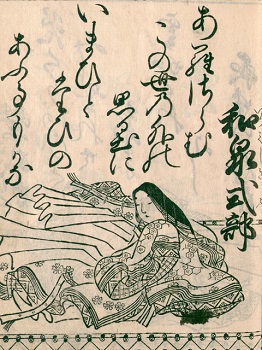 和泉式部
あらざらむ
この世乃外の
思出に
いまひと
たひの
あふこともかな